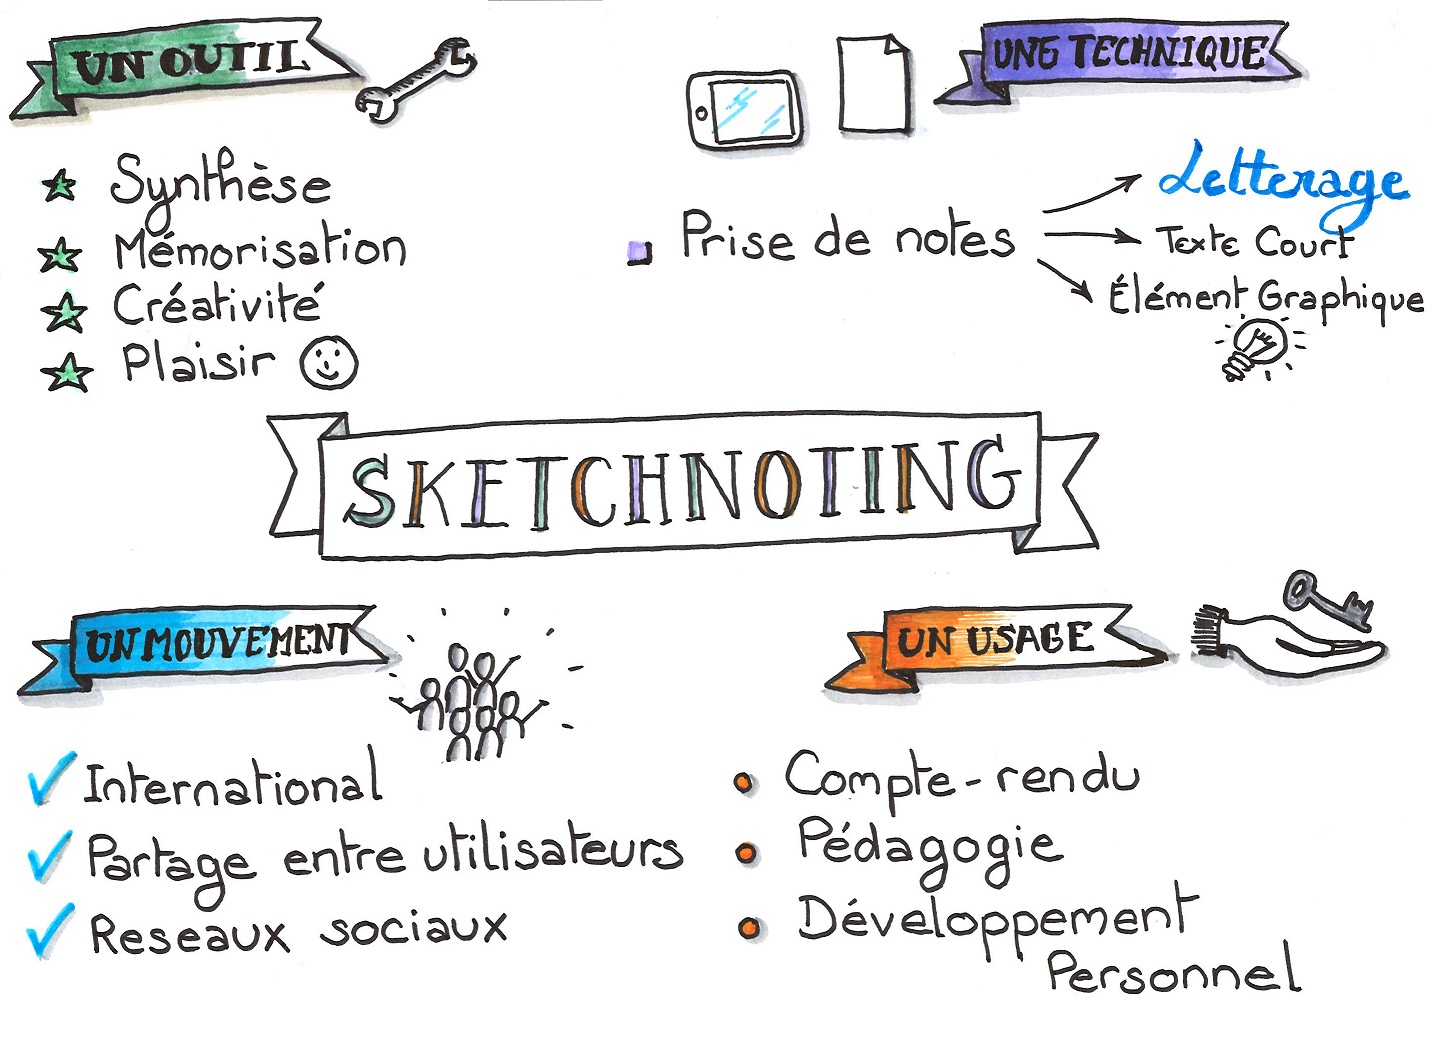 UN OUTIL
Synthèse
Mémorisation
Créativité
Plaisir
UNE TECHNIQUE
Prise de notes
Letterage
Texte Court
Élément Graphique
SKETCHNOTING
UN MOUVEMENT
International
Partage entre utilisateurs
Reseaux sociaux
UN USAGE
Compte-rendu
Pédagogie
Développement
Personnel